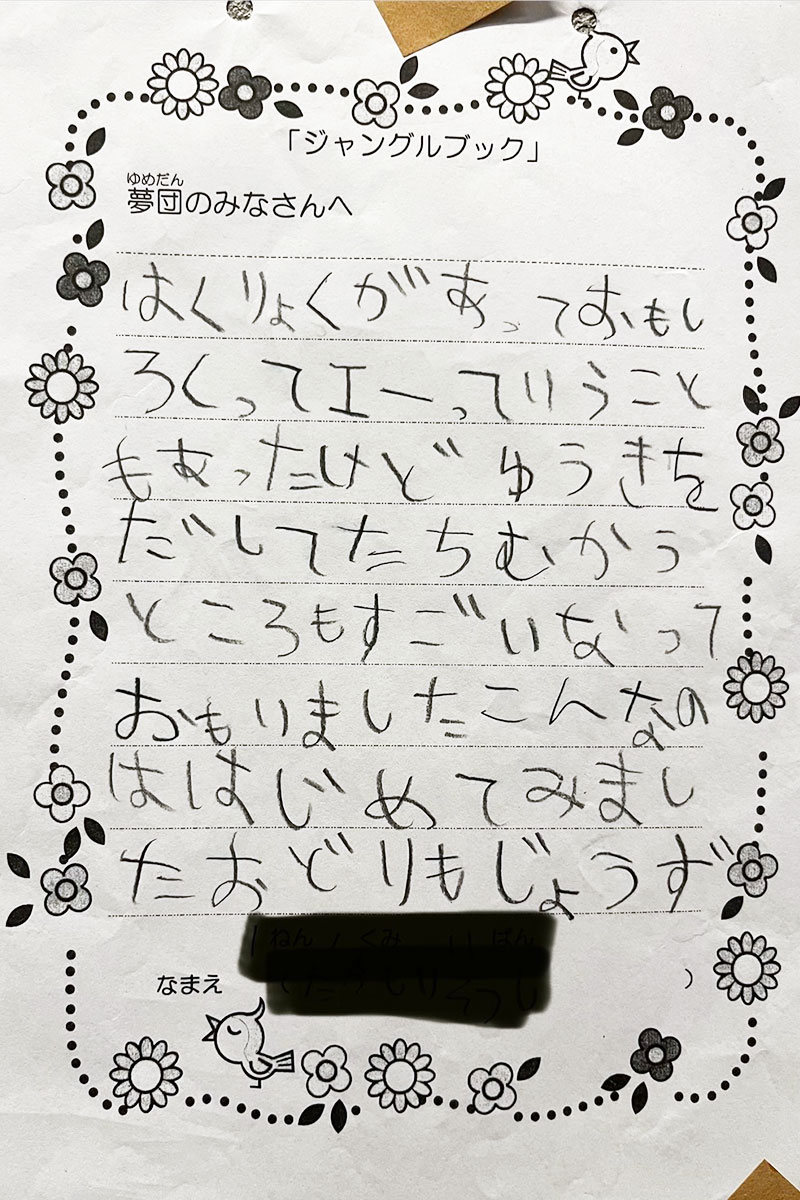 「ジャングルブック」
ゆめだん
夢団のみなさんへ
はくりょくがあっておもし
ろくってエーっていうこと
もあったけどゆうきを
だしてたちむかう
ところもすごいなって
おもいましたこんなの
ははじめてみまし
たおどりもじょうず
ねん くみ ばん
なまえ )